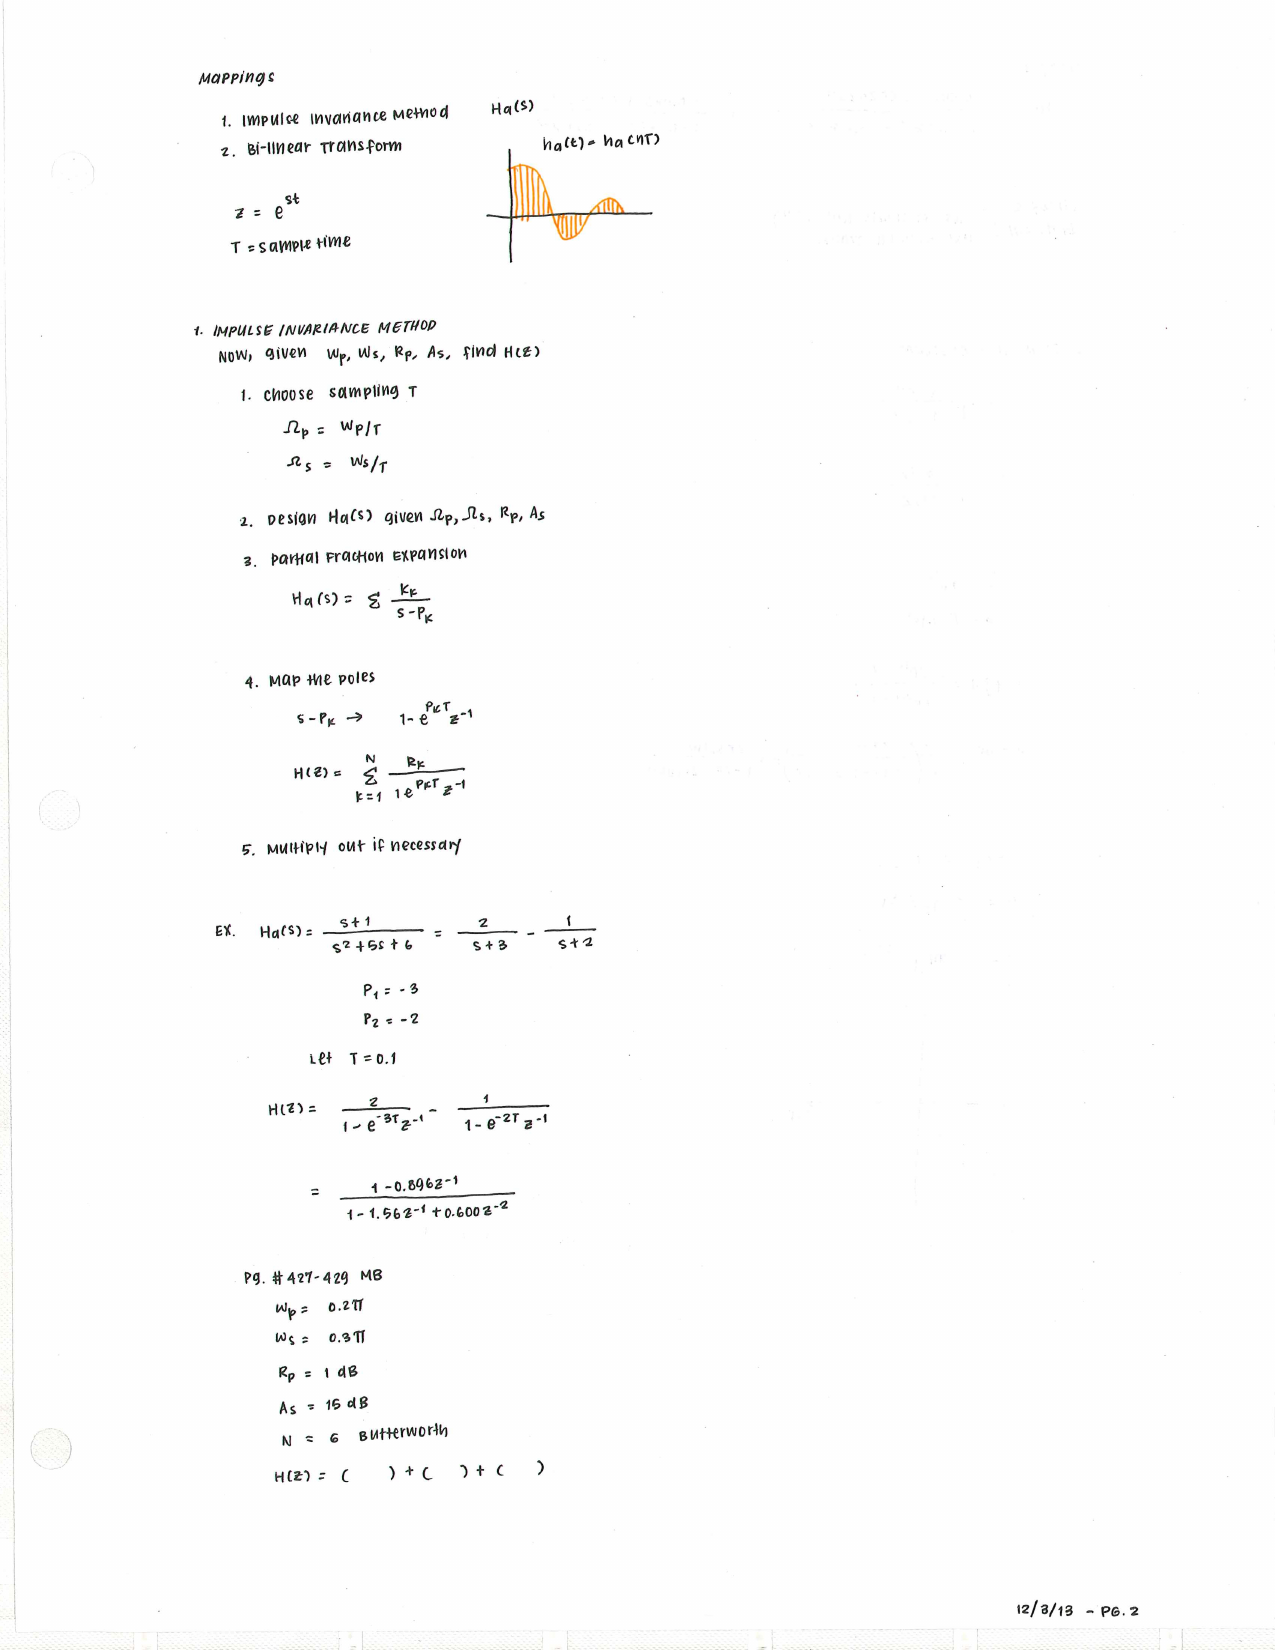 Mappings
1. Impulse Invariance Method
Ha(s)
2. Bi-linear Transform
ha(t) = ha(nT)
z = e^st
T = sample time
1. IMPULSE INVARIANCE METHOD
Now, given Wp, Ws, Rp, As, find H(z)
1. choose sampling T
Ωp = Wp/T
Ωs = Ws/T
2. Design Ha(s) given Ωp, Ωs, Rp, As
3. Partial Fraction Expansion
Ha(s) = Σ Kk / (s-Pk)
4. Map the poles
s-Pk → 1-e^PkT z^-1
H(z) = Σ (k=1, N) Rk / 1e^PkT z^-1
5. Multiply out if necessary
EX. Ha(s) = s+1 / s²+5s+6 = 2 / s+3 - 1 / s+2
P1 = -3
P2 = -2
Let T = 0.1
H(z) = 2 / 1-e^-3T z^-1 - 1 / 1-e^-2T z^-1
= 1-0.896z^-1 / 1-1.56z^-1+0.600z^-2
Pg. #427-429 MB
Wp = 0.2π
Ws = 0.3π
Rp = 1 dB
As = 15 dB
N = 6 Butterworth
H(z) = ( ) + ( ) + ( )
12/3/13 - PG. 2